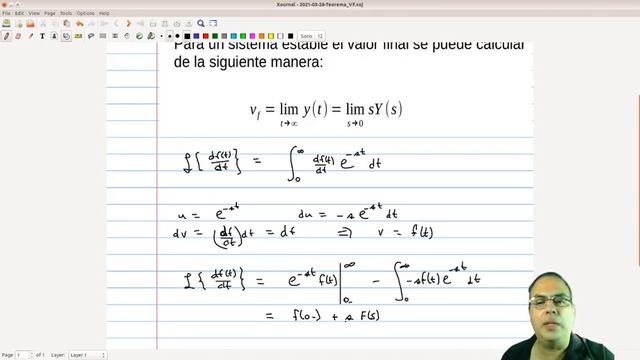 Xournal - 2021-03-28-Teorema_VF.xoj
Sans 12
Para un sistema estable el valor final se puede calcular
de la siguiente manera:
v_f = lim_{t→∞} y(t) = lim_{s→0} sY(s)
ℒ{df(t)/dt} = ∫_0^∞ df(t)/dt e^{-st} dt
u = e^{-st} du = -s e^{-st} dt
dv = (df/dt) dt = df ⇒ v = f(t)
ℒ{df(t)/dt} = e^{-st} f(t) |_{0-}^∞ - ∫_0^∞ -s f(t) e^{-st} dt
= f(0-) + s F(s)
Page 1 of 1 Layer: Layer 1